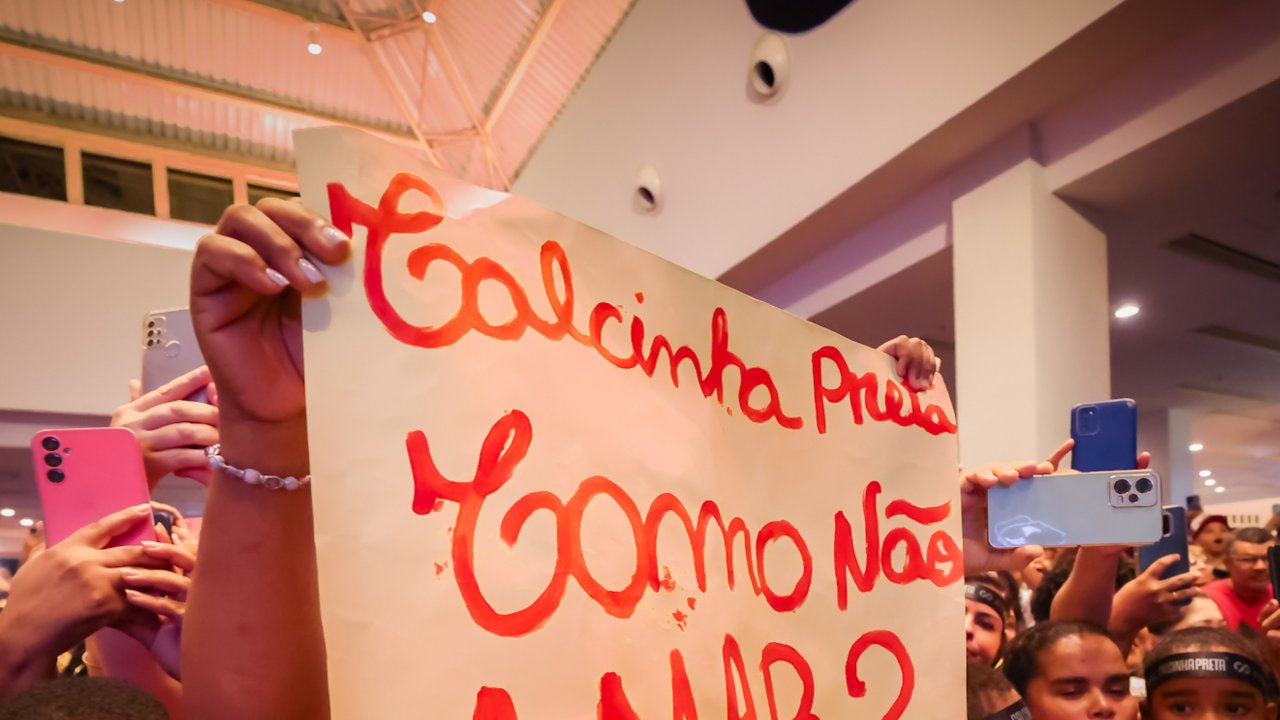 Calcinha Preta
Como Não
AMAR?
CALCINHA PRETA